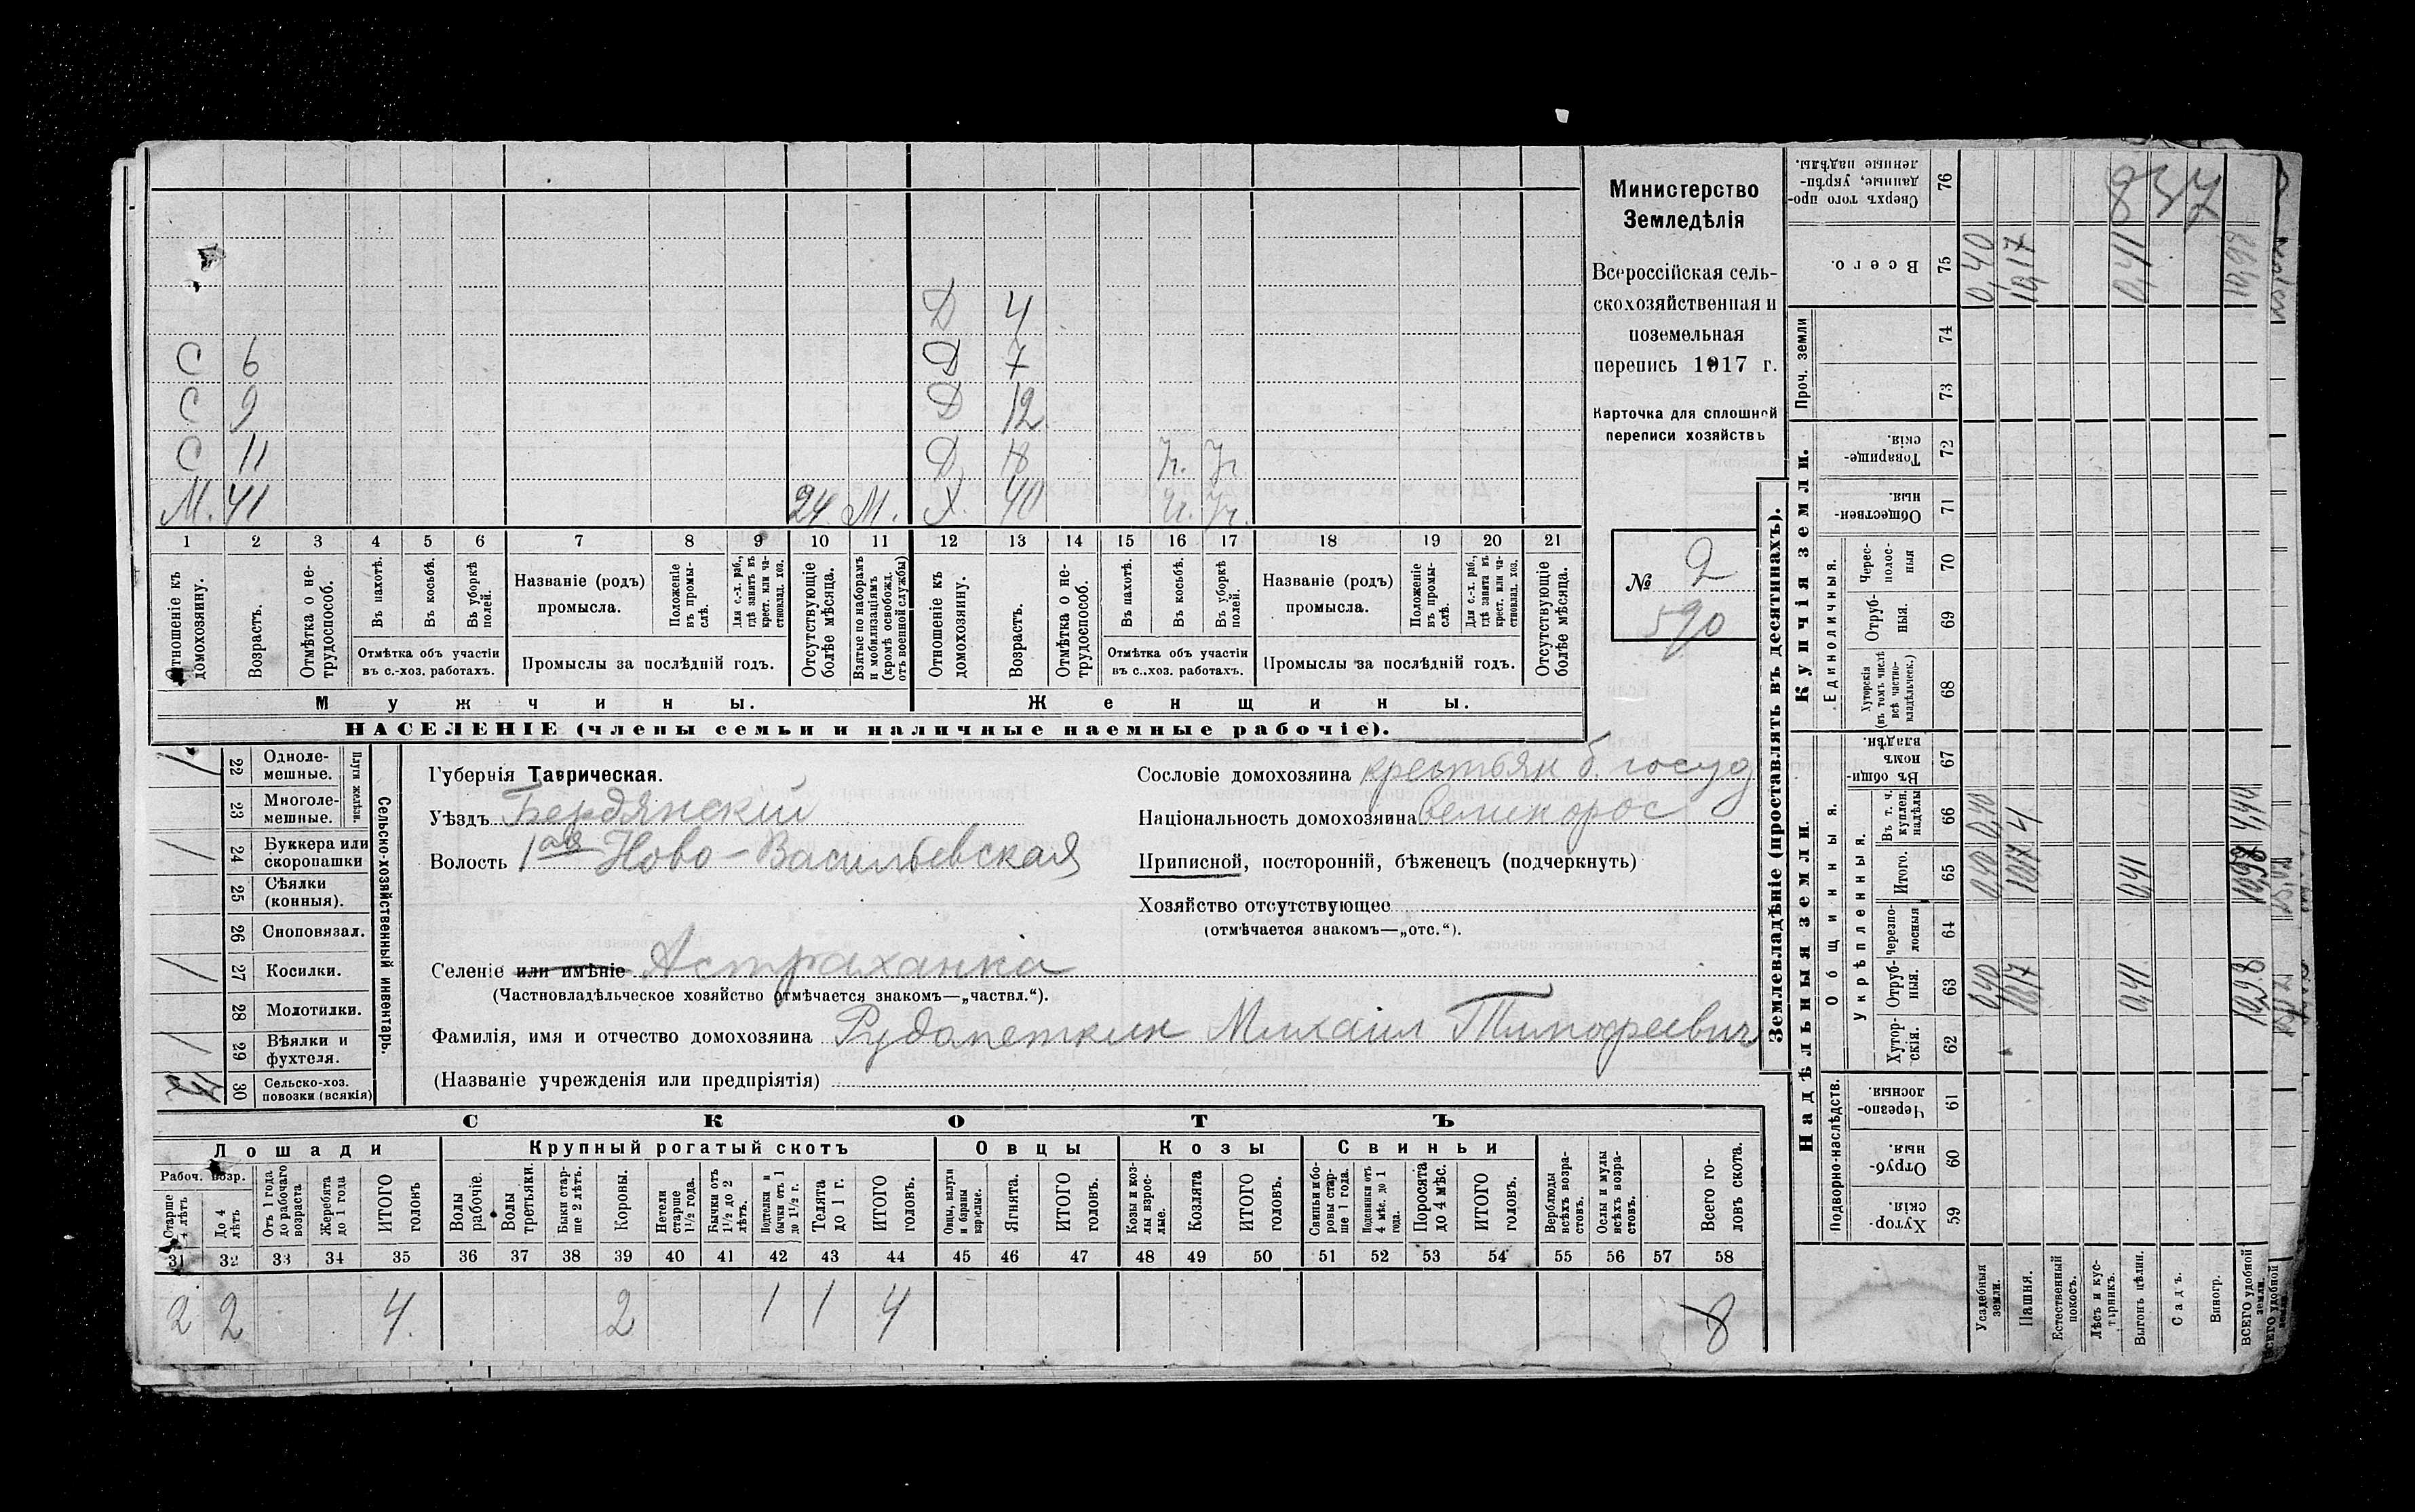 Д 4
С 6 Д 7
С 9 Д 12
С 11 Д
М. 41 24 М. Х. 40
1 2 3 4 5 6 7 8 9 10 11 12 13 14 15 16 17 18 19 20 21
Отношеніе къ домохозяину.
Возрастъ.
Отмѣтка о не-
трудоспособ.
Въ пахотѣ.
Въ косьбѣ.
Въ уборкѣ
полей.
Отмѣтка объ участіи
въ с.-хоз. работахъ.
Названіе (родъ)
промысла.
Положеніе
въ промы-
слѣ.
Для с.-х. раб.,
гдѣ занятъ въ
крест. или ча-
стновлад. хоз.
Промыслы за послѣдній годъ.
Отсутствующіе
болѣе мѣсяца.
Взятые по наборамъ
и мобилизаціямъ
(кромѣ освобожд.
отъ военной службы)
Отношеніе къ
домохозяину.
Возрастъ.
Отмѣтка о не-
трудоспособ.
Въ пахотѣ.
Въ косьбѣ.
Въ уборкѣ
полей.
Отмѣтка объ участіи
въ с..хоз. работахъ.
Названіе (родъ)
промысла.
Положеніе
въ промы-
слѣ.
Для с.-х. раб.,
гдѣ занята въ
крест. или ча-
стновлад. хоз.
Промыслы за послѣдній годъ.
Отсутствующіе
болѣе мѣсяца.
Мужчины.
Женщины.
НАСЕЛЕНІЕ (члены семьи и наличные наемные рабочіе).
Министерство
Земледѣлія
Всероссійская сель-
скохозяйственная и
поземельная
перепись 1917 г.
Карточка для сплошной
переписи хозяйствъ
№ 2
590
Сельско-хозяйственный инвентарь.
Плуги желѣзн.
/ 22 Одноле-
мешные.
23 Многоле-
мешные.
/ 24 Буккера или
скоропашки
25 Сѣялки
(конныя).
26 Сноповязал.
/ 27 Косилки.
28 Молотилки.
/ 29 Вѣялки и
фухтеля.
30 Сельско-хоз.
повозки (всякія)
Губернія Таврическая.
Уѣздъ Бердянскій
Волость 1ая Ново-Васильевская
Селеніе или имѣніе Астраханка
(Частновладѣльческое хозяйство отмѣчается знакомъ—„частвл.“).
Фамилія, имя и отчество домохозяина Рудаметкин Михаил Тимофеевич
(Названіе учрежденія или предпріятія)
Сословіе домохозяина крестьян б. госуд
Національность домохозяина великорос
Приписной, посторонній, бѣженецъ (подчеркнуть)
Хозяйство отсутствующее
(отмѣчается знакомъ—„отс.“).
СКОТЪ
Лошади
Крупный рогатый скотъ
Овцы
Козы
Свиньи
Рабоч. возр.
Старше
4 лѣтъ
До 4
лѣтъ
Отъ 1 года
до рабочаго
возраста
Жеребята
до 1 года
ИТОГО
головъ
Волы
рабочіе.
Волы
третьяки.
Быки стар-
ше 2 лѣтъ.
Коровы.
Нетели
старше
1½ года.
Бычки отъ
1½ до 2
лѣтъ.
Подтелки и
бычки отъ 1
до 1½ г.
Телята
до 1 г.
ИТОГО
головъ.
Овцы, валухи
и бараны
взрослые.
Ягнята.
ИТОГО
головъ.
Козы и коз-
лы взрос-
лые.
Козлята
ИТОГО
головъ.
Свиньи и бо-
ровы стар-
ше 1 года.
Подсвинки отъ
4 мѣс. до 1
года.
Поросята
до 4 мѣс.
ИТОГО
головъ.
Верблюды
всѣхъ возра-
стовъ.
Ослы и мулы
всѣхъ возра-
стовъ.
Всего го-
ловъ скота.
31 32 33 34 35 36 37 38 39 40 41 42 43 44 45 46 47 48 49 50 51 52 53 54 55 56 57 58
2 2 4. 2 1 1 4 8
Землевладѣніе (проставлять въ десятинахъ).
Надѣльныя земли.
Купчія земли.
Проч. земли
Подворно-наслѣдств.
Общинныя.
Укрѣпленныя.
Единоличныя.
Сверхъ того про-
данные, укрѣп-
ленные надѣлы. 76
837
Всего. 75 0,40 10,17 0,41 10,98
74
73
Товарище-
скія. 72
Обществен-
ныя. 71
Черес-
полос-
ныя 70
Отруб-
ныя. 69
Хуторскія
(въ томъ числѣ
всѣ частно-
владѣльческ.) 68
Въ общин-
номъ
владѣн. 67
Въ т. ч.
куплен.
надѣлы 66 0,40 4 4,40
Итого. 65 0,40 10,17 0,41 10,98
Черезпо-
лосныя 64
Отруб-
ныя. 63 0,40 10,17 0,41 10,98
Хутор-
скія. 62
Черезпо-
лосныя. 61
Отруб-
ныя. 60
Хутор-
скія. 59
Усадебныя
земли.
Пашня.
Естественный
покосъ.
Лѣсъ и кус-
тарникъ.
Выгонъ цѣлин.
Садъ.
Виногр.
ВСЕГО удобной
земли.
ВСЕГО удобной
земли.